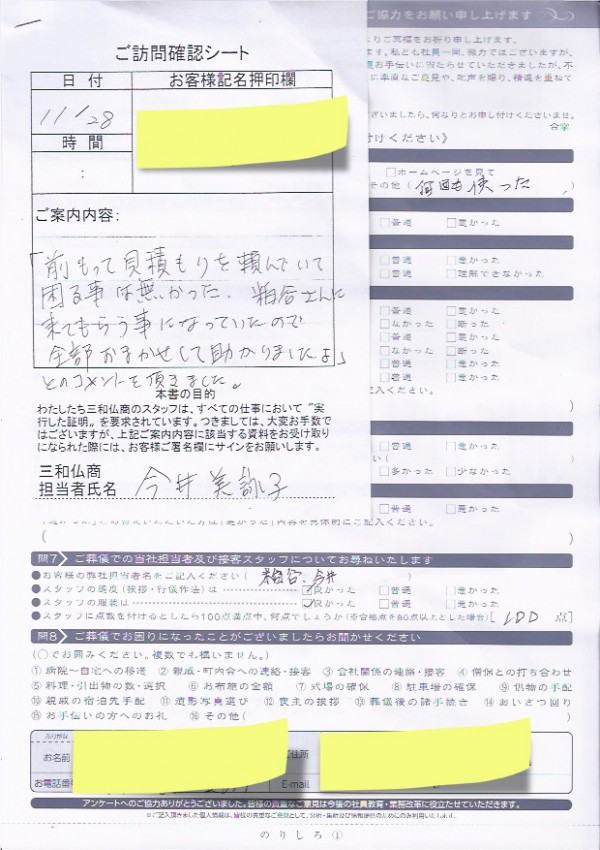 ご協力をお願い申し上げます
ご訪問確認シート
日付
お客様記名押印欄
11/28
時間
:
ご案内内容:
「前もって見積もりを頼んでいて
困る事は無かった、粕谷さんに
来てもらう事になっていたので
全部おまかせして助かりましたよ」
とのコメントを頂きました。
本書の目的
わたしたち三和仏商のスタッフは、すべての仕事において"実
行した証明"を要求されています。つきましては、大変お手数で
はございますが、上記ご案内内容に該当する資料をお受け取り
になられた際には、お客様ご署名欄にサインをお願いします。
三和仏商
担当者氏名 今井美詠子
よりご冥福をお祈り申し上げます。
ます。私ども社員一同、微力ではございますが、
お手伝いに当たらせていただきましたが、不
に率直なご意見や、叱声を賜り、精進を重ねて
ございましたら、何なりとお申し付けくださいませ。
合掌
付けください》
□ホームページを見て
その他(何回も使った)
□普通 □悪かった
□普通 □悪かった
□普通 □理解できなかった
□普通 □悪かった
□なかった □断った
□普通 □悪かった
□なかった □断った
□普通 □悪かった
□普通 □悪かった
記入ください。
)
□普通 □悪かった
)
□多かった □少なかった
□普通 □悪かった
(
)
問7 ご葬儀での当社担当者及び接客スタッフについてお尋ねいたします
●お客様の弊社担当者名をご記入ください(粕谷、今井)
●スタッフの態度(挨拶・行儀作法)は ☑良かった □普通 □悪かった
●スタッフの服装は ☑良かった □普通 □悪かった
●スタッフに点数を付けるとしたら100点満点中、何点でしょうか(※合格点を80点以上とした場合)[100 点]
問8 ご葬儀でお困りになったことがございましたらお聞かせください
(○でお囲みください。複数でも構いません。)
①病院~自宅への移送 ②親戚・町内会への連絡・接客 ③会社関係の連絡・接客 ④僧侶との打ち合わせ
⑤料理・引出物の数・選択 ⑥お布施の金額 ⑦式場の確保 ⑧駐車場の確保 ⑨供物の手配
⑩親戚の宿泊先手配 ⑪遺影写真選び ⑫喪主の挨拶 ⑬葬儀後の諸手続き ⑭あいさつ回り
⑮お手伝いの方へのお礼 ⑯その他( )
ふりがな
お名前
ご住所
お電話番号
E-mail
アンケートへのご協力ありがとうございました。皆様の貴重なご意見は今後の社員教育・業務改革に役立たせていただきます。
※ご記入頂きました個人情報は、皆様の貴重なご意見として、分析・集計及び情報提供のためにのみ利用いたします。
のりしろ④